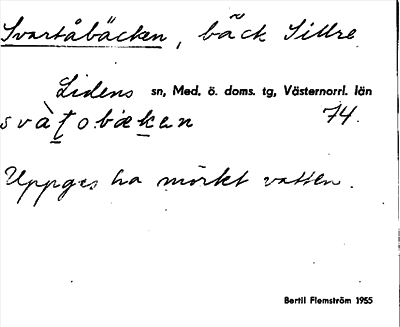 Svartåbäcken, bäck Sillre
Lidens sn, Med. ö. doms. tg, Västernorrl. län
svàṭobæken 74.
Uppges ha mörkt vatten.
Bertil Flemström 1955